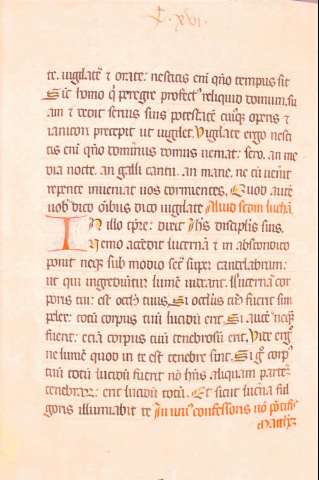 C. xvi.
te. vigilatē ⁊ orate: nescitis eni qn̄o tempus sit
Sic̄ homo q̄ peregre profect⁹ reliquid domum. su
am ⁊ dedit seruis suis potestatē cuiusq̨ operis ⁊
ianitori precepit ut uigilet. Vigilate ergo nesci
tis eni qn̄o dominus domus ueniat: sero. an me
dia nocte. an galli cantu. an mane. ne cū uen̄it
repente inueniat uos dormientes. Quod autē
uob̄ dico om̄ibus dico vigilate Aliud scdm lucā.
In illo tp̄re: dixit ih̄s disciplis suis.
Nemo accēdit lucernā ⁊ in abscondito
ponit neq̨ sub modio sed super candelabrum:
ut qui ingrediūtur lumē uideant. Lucerna cor
poris tui: est ocl̄us tuus. Si ocl̄us tuus fuerit sim
plex: totū corpus tuū lucidū erit. Si autē neq̄ꝫ
fuerit: etiā corpus tuū tenebrosū erit. Vide erg°
ne lumē quod in te est tenebre sint. Si g° corp⁹
tuū totū lucidū fuerit nō hn̄s aliquam partē
tenebraꝝ: erit lucidū totū. Et sicut luc̄na ful
goris illuminabit te In uni⁹ confessoris nō pōtific̄
Mathꝫ